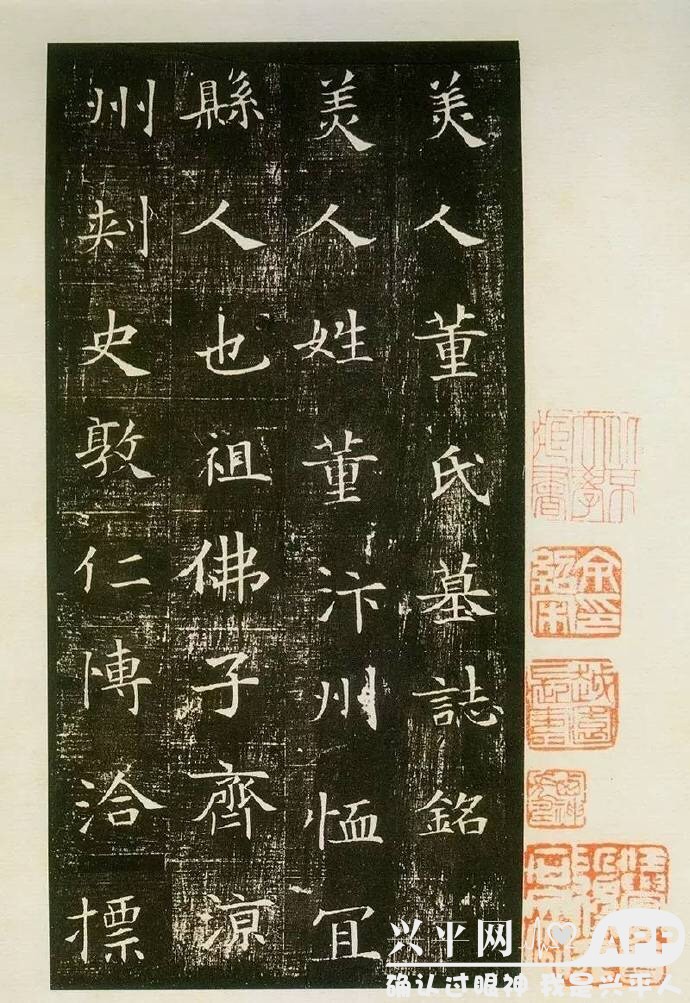 美人董氏墓誌銘
美人姓董汴州恤冝
縣人也祖佛子齊涼
州刾史敦仁愽洽標
余印紹宋
兴平网APP
确认过眼神 我是兴平人